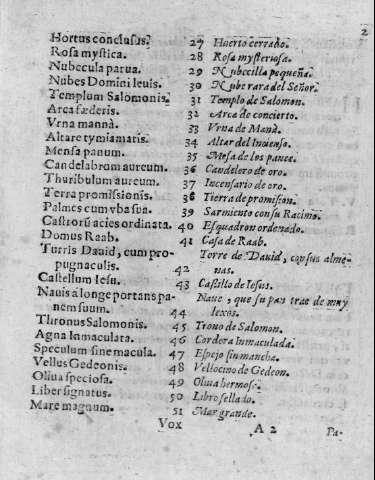 2
Hortus conclusus. 27 Huerto cerrado.
Rosa mystica. 28 Rosa mysteriosa.
Nubecula parua. 29 Nubecilla pequeña.
Nubes Domini leuis. 30 Nube rara del Señor.
Templum Salomonis. 31 Templo de Salomon.
Arca fæderis. 32 Arca de concierto.
Vrna mannà. 33 Vrna de Manà.
Altare tymiamatis. 34 Altar del Incienso.
Mensa panum. 35 Mesa de los panes.
Candelabrum aureum. 36 Candelero de oro.
Thuribulum aureum. 37 Incensario de oro.
Terra promissionis. 38 Tierra de promision.
Palmes cum vba sua. 39 Sarmiento con su Racimo.
Castrorũ acies ordinata. 40 Esquadron ordenado.
Domus Raab. 41 Casa de Raab.
Turris Dauid, cum pro- Torre de Dauid, con sus alme-
pugnaculis. 42 nas.
Castellum Iesu. 43 Castillo de Iesus.
Nauis à longe portans pa- Naue, que su pan trae de muy
nem suum. 44 lexos.
Thronus Salomonis. 45 Trono de Salomon.
Agna Inmaculata. 46 Cordera Inmaculada.
Speculum sine macula. 47 Espejo sin mancha.
Vellus Gedeonis. 48 Vellocino de Gedeon.
Oliua speciosa. 49 Oliua hermosa.
Liber signatus. 50 Libro sellado.
Mare magnum. 51 Mar grande.
Vox A 2 Pa-